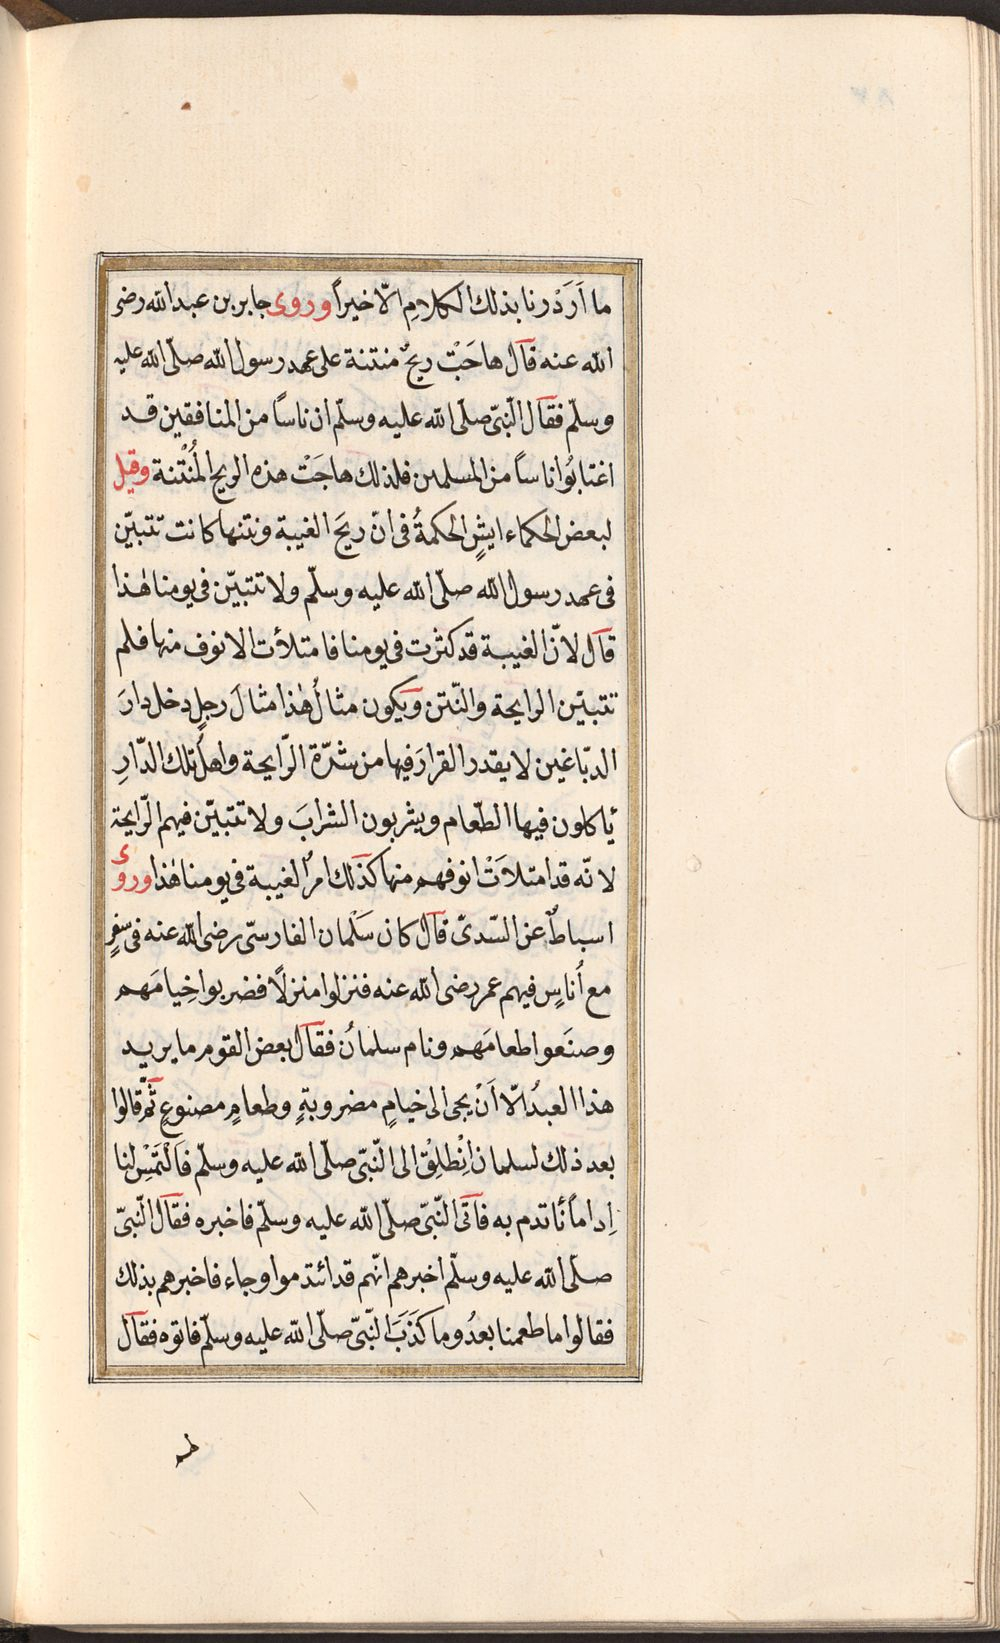 ما اَرَدْنا بذلك الكلامِ الّا خيراً وروى جابر بن عبد الله رضى
الله عنه قال هاجَتْ ريحٌ منتنة على عهد رسول الله صلّى الله عليه
وسلّم فقال النّبىّ صلّى الله عليه وسلّم ان ناساً من المنافقين قد
اغتابُوا ناساً من المسلمين فلذلك هاجَتْ هذه الريح المُنْتنة وقيل
لبعض الحكماء ايشٍ الحكمةُ فى انّ ريحَ الغيبة ونتنها كانت تتبيّن
فى عهد رسول الله صلّى الله عليه وسلّم ولا تتبيّن فى يومنا هٰذا
قال لانّ الغيبة قد كثرت فى يومنا فامتلأت الانوف منها فلم
تتبيّن الرايحة والنّتن ويكون مثالُ هٰذا مثالَ رجلٍ دخل دارَ
الدبّاغين لا يقدر القرارَ فيها من شدّة الرّايحة واهلُ تلك الدّارِ
ئاكلون فيها الطّعام ويشربون الشرابَ ولا تتبيّن فيهم الرّايحة
لانّه قد امتلاَتْ انوفهم منها كذلك امرُ الغيبة فى يومنا هٰذا وروى
اسباطٌ عن السّدىّ قال كان سَلْمان الفارسىّ رضى الله عنه فى سفرٍ
مع اُناسٍ فيهم عمر رضى الله عنه فنزلوا منزلًا فضربوا خِيامَهم
وصنَعوا طعامَهم ونام سلمانُ فقال بعض القوم ما يريد
هذا العبدُ الّا اَنْ يجى الى خيامٍ مضروبةٍ وطعامٍ مصنوعٍ ثمّ قالوا
بعد ذلك لسلمان اِنْطلِقْ الى النّبىّ صلّى الله عليه وسلّم فالْتَمْسِ لنا
اِداماً نٔاتدم به فاَتى النّبىّ صلّى الله عليه وسلّم فاخبره فقال النّبىّ
صلّى الله عليه وسلّم اخبرهم انّهم قد ائتدموا وجاء فاخبرهم بذلك
فقالوا ما طعمنا بعدُ وما كَذَبَ النّبىّ صلّى الله عليه وسلّم فاتوه فقال